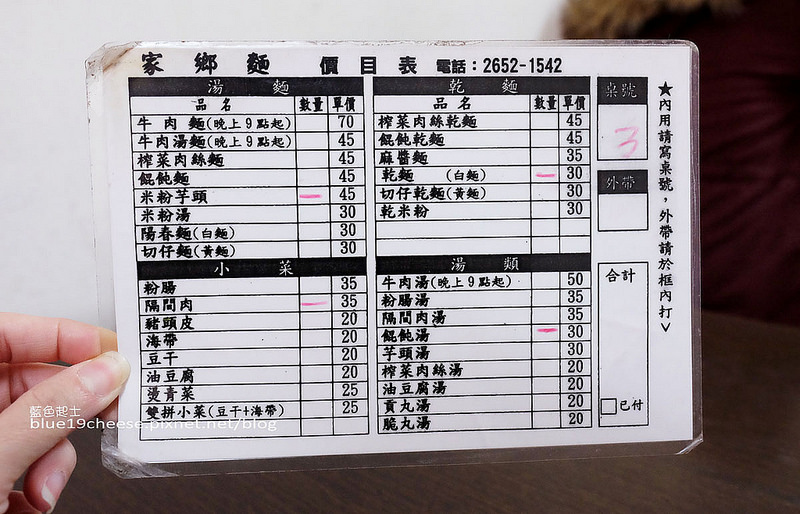 家鄉麵 價目表 電話：2652-1542
湯麵
品名 數量 單價
牛肉麵(晚上9點起) 70
牛肉湯麵(晚上9點起) 45
榨菜肉絲麵 45
餛飩麵 45
米粉芋頭 一 45
米粉湯 30
陽春麵(白麵) 30
切仔麵(黃麵) 30
小菜
粉腸 35
隔間肉 一 35
豬頭皮 20
海帶 20
豆干 20
油豆腐 20
燙青菜 25
雙拼小菜(豆干+海帶) 25
乾麵
品名 數量 單價
榨菜肉絲乾麵 45
餛飩乾麵 45
麻醬麵 35
乾麵 (白麵) 一 30
切仔乾麵(黃麵) 30
乾米粉 30
湯類
牛肉湯(晚上9點起) 50
粉腸湯 35
隔間肉湯 35
餛飩湯 一 30
芋頭湯 30
榨菜肉絲湯 20
油豆腐湯 20
貢丸湯 20
脆丸湯 20
桌號
3
外帶
合計
□已付
★內用請寫桌號，外帶請於框內打∨
藍色起士
blue19cheese.pixnet.net/blog